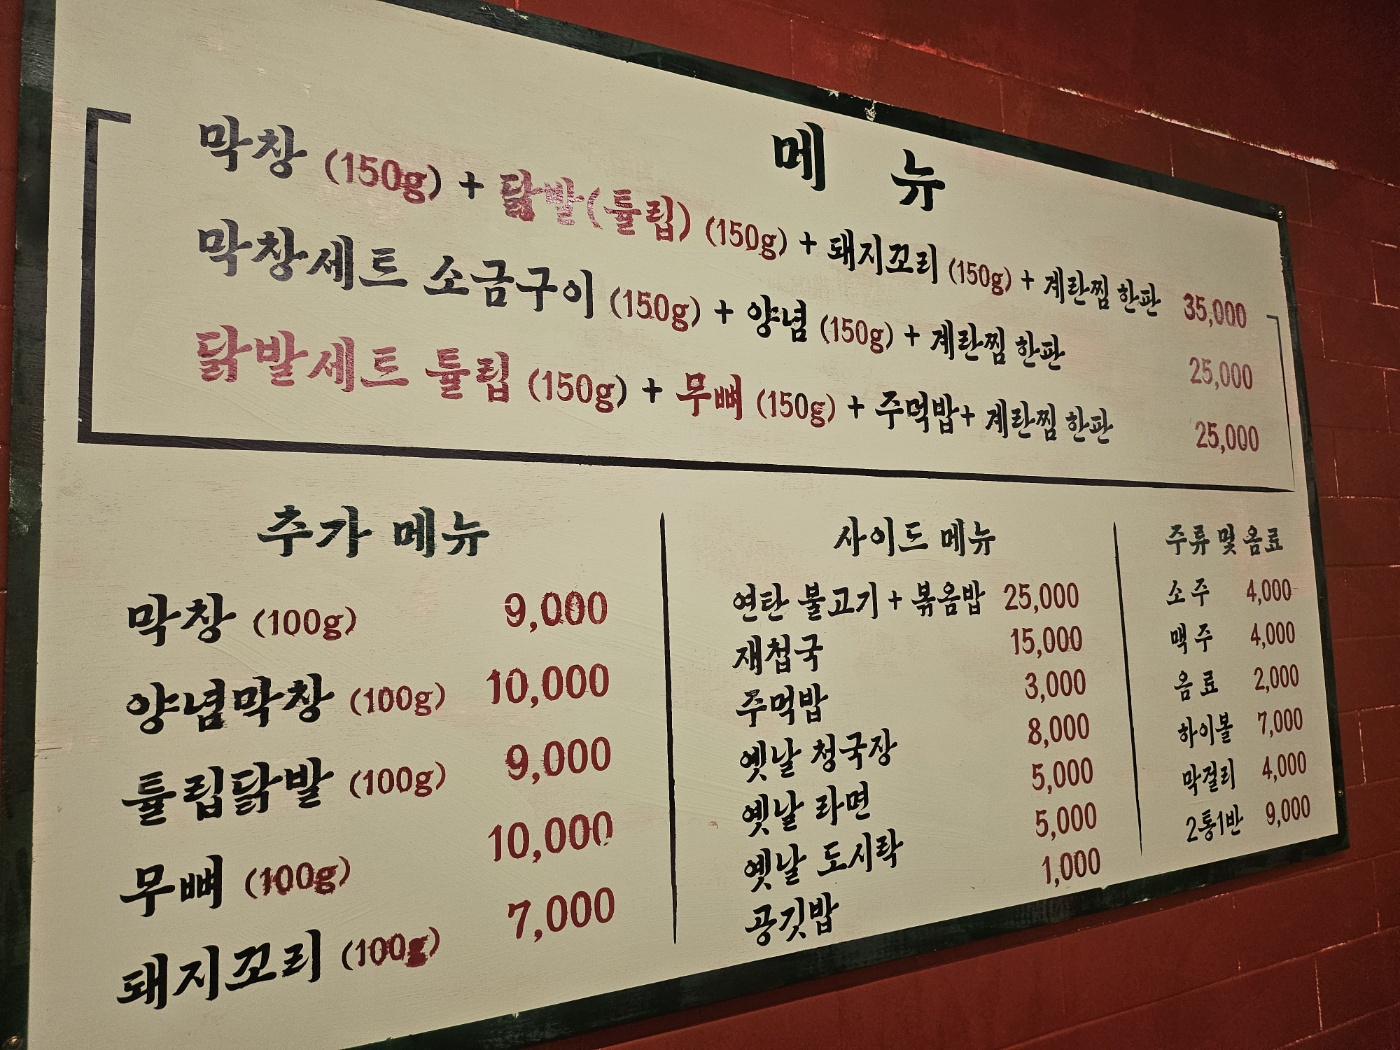 메뉴
막창 (150g) + 닭발(튤립) (150g) + 돼지꼬리 (150g) + 계란찜 한판 35,000
막창세트 소금구이 (150g) + 양념 (150g) + 계란찜 한판 25,000
닭발세트 튤립 (150g) + 무뼈 (150g) + 주먹밥 + 계란찜 한판 25,000
추가 메뉴
막창 (100g) 9,000
양념막창 (100g) 10,000
튤립닭발 (100g) 9,000
무뼈 (100g) 10,000
돼지꼬리 (100g) 7,000
사이드 메뉴
연탄 불고기 + 볶음밥 25,000
재첩국 15,000
주먹밥 3,000
옛날 청국장 8,000
옛날 라면 5,000
옛날 도시락 5,000
공깃밥 1,000
주류 및 음료
소주 4,000
맥주 4,000
음료 2,000
하이볼 7,000
막걸리 4,000
2통1반 9,000